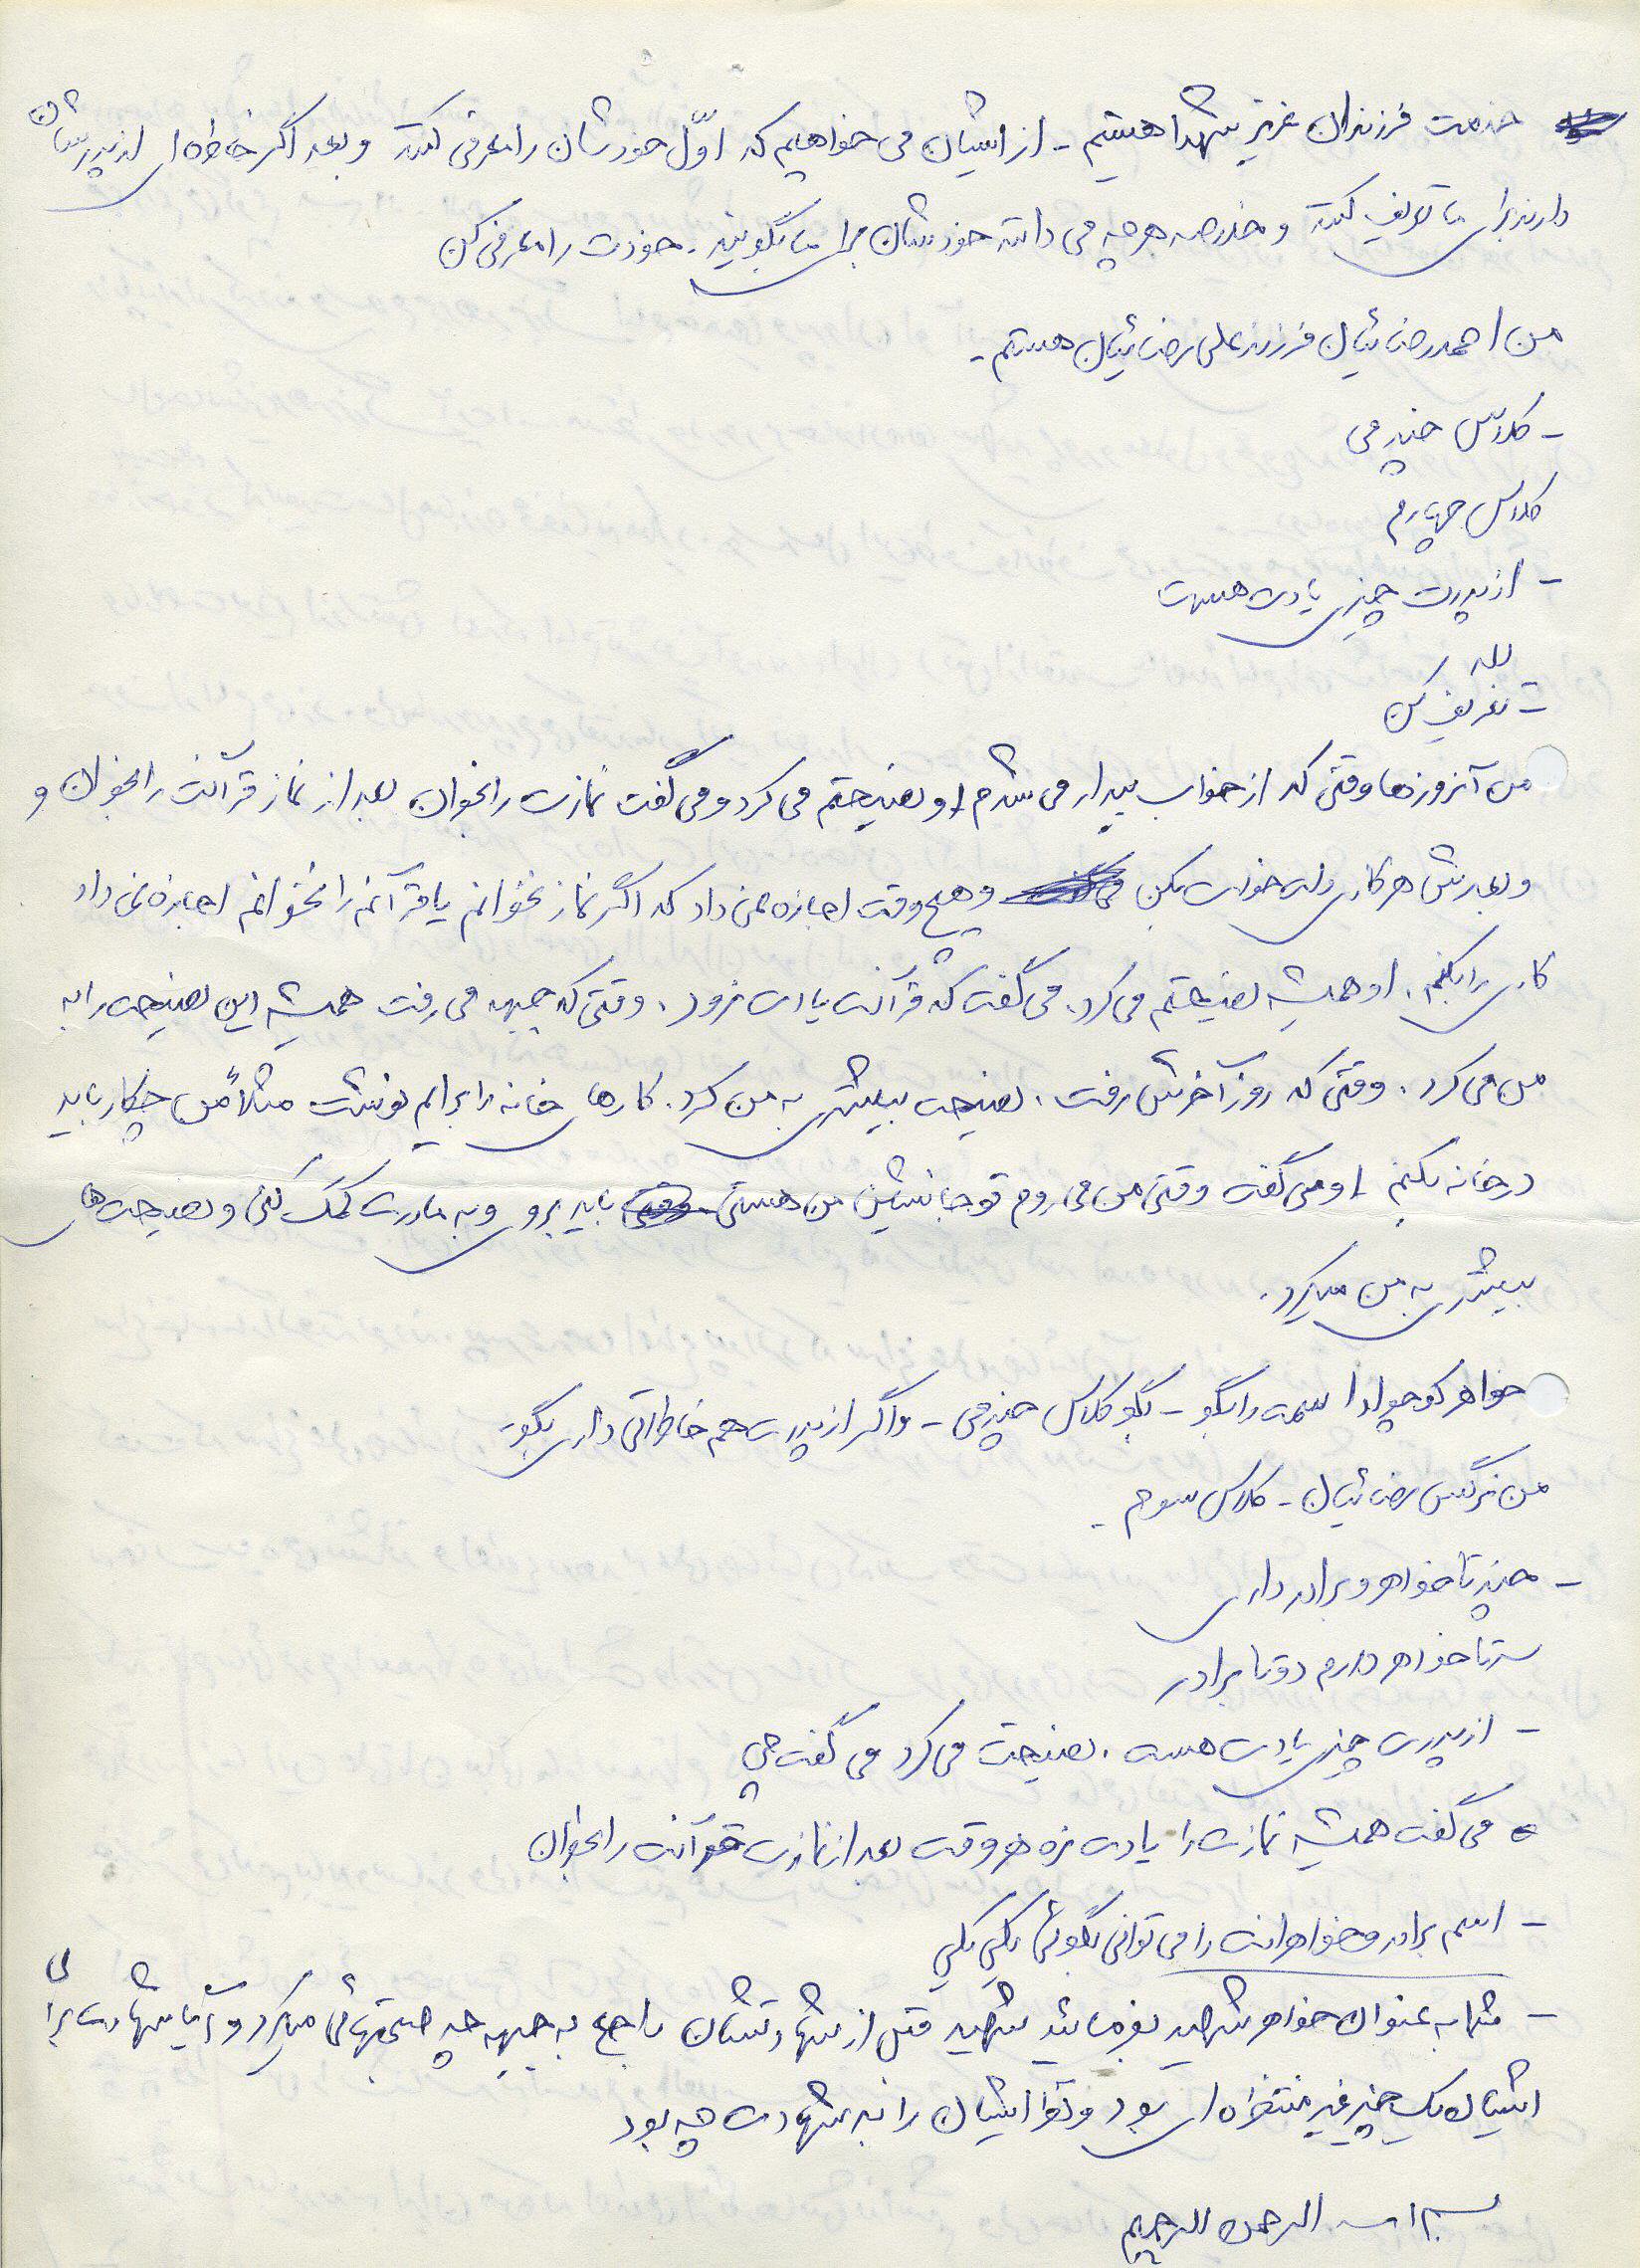 خدمت فرزندان عزیز شهدا هستیم - از ایشان می خواهیم که اوّل خودشان را معرفی کنند و بعد اگر خاطره ای از پدرشان
دارند برای ما تعریف کنند و خلاصه هرچه می دانند خودشان برای ما بگویند. خودت را معرفی کن
من احمد رضائیان فرزند علی رضائیان هستم -
- کلاس چندمی
کلاس چهارم
- از پدرت چیزی یادت هست
بله
- تعریف کن
من آنروزها وقتی که از خواب بیدار می شدم او نصیحتم می کرد و می گفت نمازت را بخوان بعد از نماز قرآنت را بخوان و
و بعدش هرکاری دلت خواست بکن و هیچ وقت اجازه نمی داد که اگر نماز نخوانم یا قرآنم را نخوانم اجازه نمی داد
کاری را بکنم. او همیشه نصیحتم می کرد. می گفت که قرآنت یادت نرود. وقتی که جبهه می رفت همیشه این نصیحت را به
من می کرد. وقتی که روز آخرش رفت، نصیحت بیشتری به من کرد. کارهای خانه را برایم نوشت مثلاً من چکار باید
در خانه بکنم او می گفت وقتی من می روم تو جانشین من هستی باید بروی و به مادرت کمک کنی و نصیحت های
بیشتری به من میکرد.
خواهر کوچولو اسمت را بگو - بگو کلاس چندمی - و اگر از پدرت هم خاطراتی داری بگو -
من نرگس رضائیان - کلاس سوم -
- چند تا خواهر و برادر داری
سه تا خواهر دارم دو تا برادر
- از پدرت چیزی یادت هست. نصیحت می کرد می گفت چی
می گفت همیشه نمازت را یادت نره هر وقت بعد از نمازت قرآنت را بخوان
- اسم برادر و خواهرانت را می توانی بگوئی یکی یکی
- شما به عنوان خواهر شهید بفرمائید شهید قبل از شهادتشان راجع به جبهه چه صحبتهائی میکرد و آیا شهادت برای
ایشان یک چیز غیر منتظره ای بود و نظر ایشان راجع به شهادت چه بود
بسم الله الرحمن الرحیم